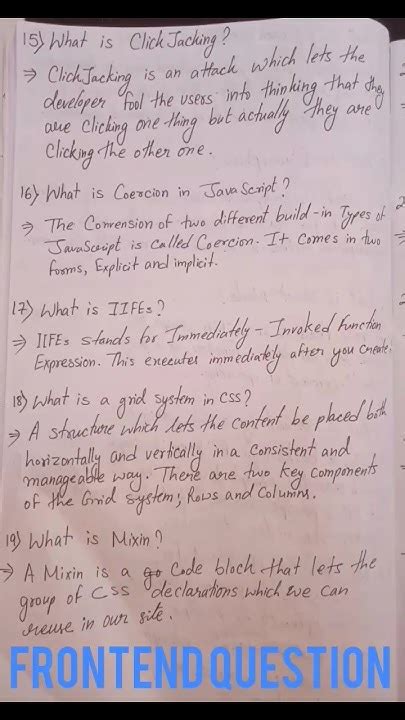 15) What is ClickJacking?
⇒ ClickJacking is an attack which lets the
developer fool the users into thinking that they
are clicking one thing but actually they are
Clicking the other one.
16) What is Coercion in JavaScript?
⇒ The Conversion of two different build-in Types of
JavaScript is called Coercion. It comes in two
forms, Explicit and implicit.
17) What is IIFEs?
⇒ IIFEs stands for Immediately-Invoked Function
Expression. This executes immediately after you create.
18) What is a grid system in CSS?
⇒ A structure which lets the content be placed both
horizontally and vertically in a consistent and
manageable way. There are two key components
of the Grid System; Rows and Columns.
19) What is Mixin?
⇒ A Mixin is a Code block that lets the
group of CSS declarations which we can
reuse in our site.
FRONTEND QUESTION